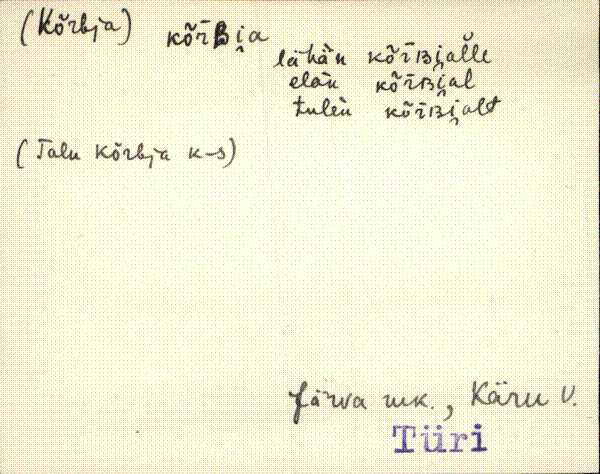 (Kõrbja) kõrʙi̯a
lähän kõrʙi̯alle
elan kõrʙi̯al
tulen kõrʙi̯alt
(Talu Kõrbja k-s)
Järva mk., Käru v.
Türi